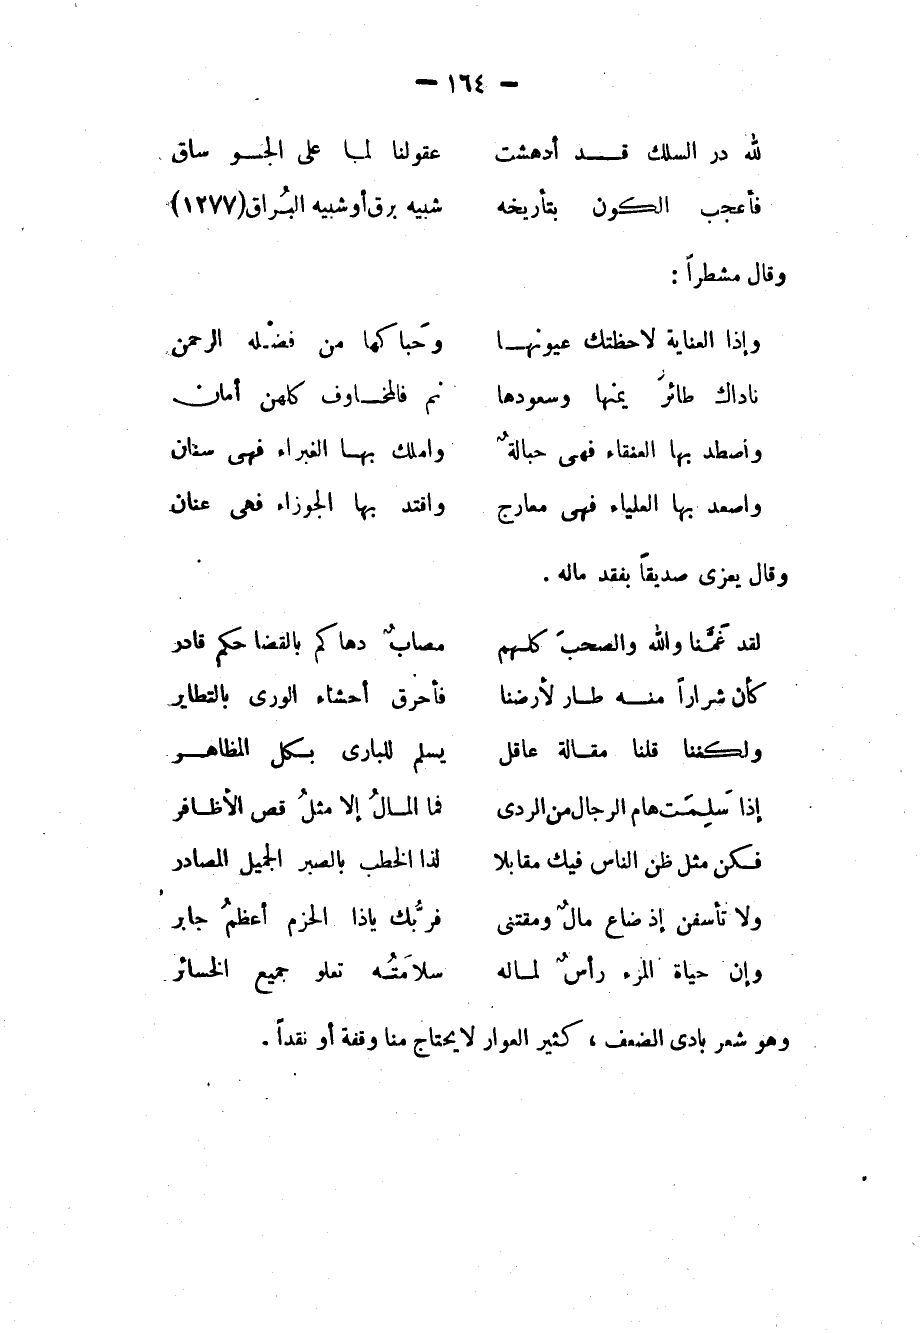 — ١٦٤ —
لله در السلك قد أدهشت عقولنا لما على الجو ساق
فأعجب الكون بتأريخه شبيه برق أو شبيه البُراق (١٢٧٧)
وقال مشطراً :
وإذا العناية لاحظتك عيونها وحَباكها من فضْله الرحمن
ناداك طائرُ يمنها وسعودها نم فالمخاوف كلهن أمان
واصطد بها العنقاء فهى حبالةٌ واملك بها الغبراء فهى سنان
واصعد بها العلياء فهى معارج واقتد بها الجوزاء فهى عنان
وقال يعزى صديقاً بفقد ماله .
لقد غَمَّنا والله والصحبَ كلهم مصابٌ دهاكم بالقضا حكم قادر
كأن شراراً منه طار لأرضنا فأحرق أحشاء الورى بالتطاير
ولكننا قلنا مقالة عاقل يسلم للبارى بكل المظاهر
إذا سَلِمَت هام الرجال من الردى فما المالُ إلا مثلُ قص الأظافر
فكن مثل ظن الناس فيك مقابلا لذا الخطب بالصبر الجميل المصادر
ولا تأسفن إذ ضاع مالٌ ومقتنى فربُّك ياذا الحزم أعظمُ جابر
وإن حياة المرء رأسٌ لماله سلامَتُه تعلو جميع الخسائر
وهو شعر بادى الضعف ، كثير العوار لايحتاج منا وقفة أو نقداً .